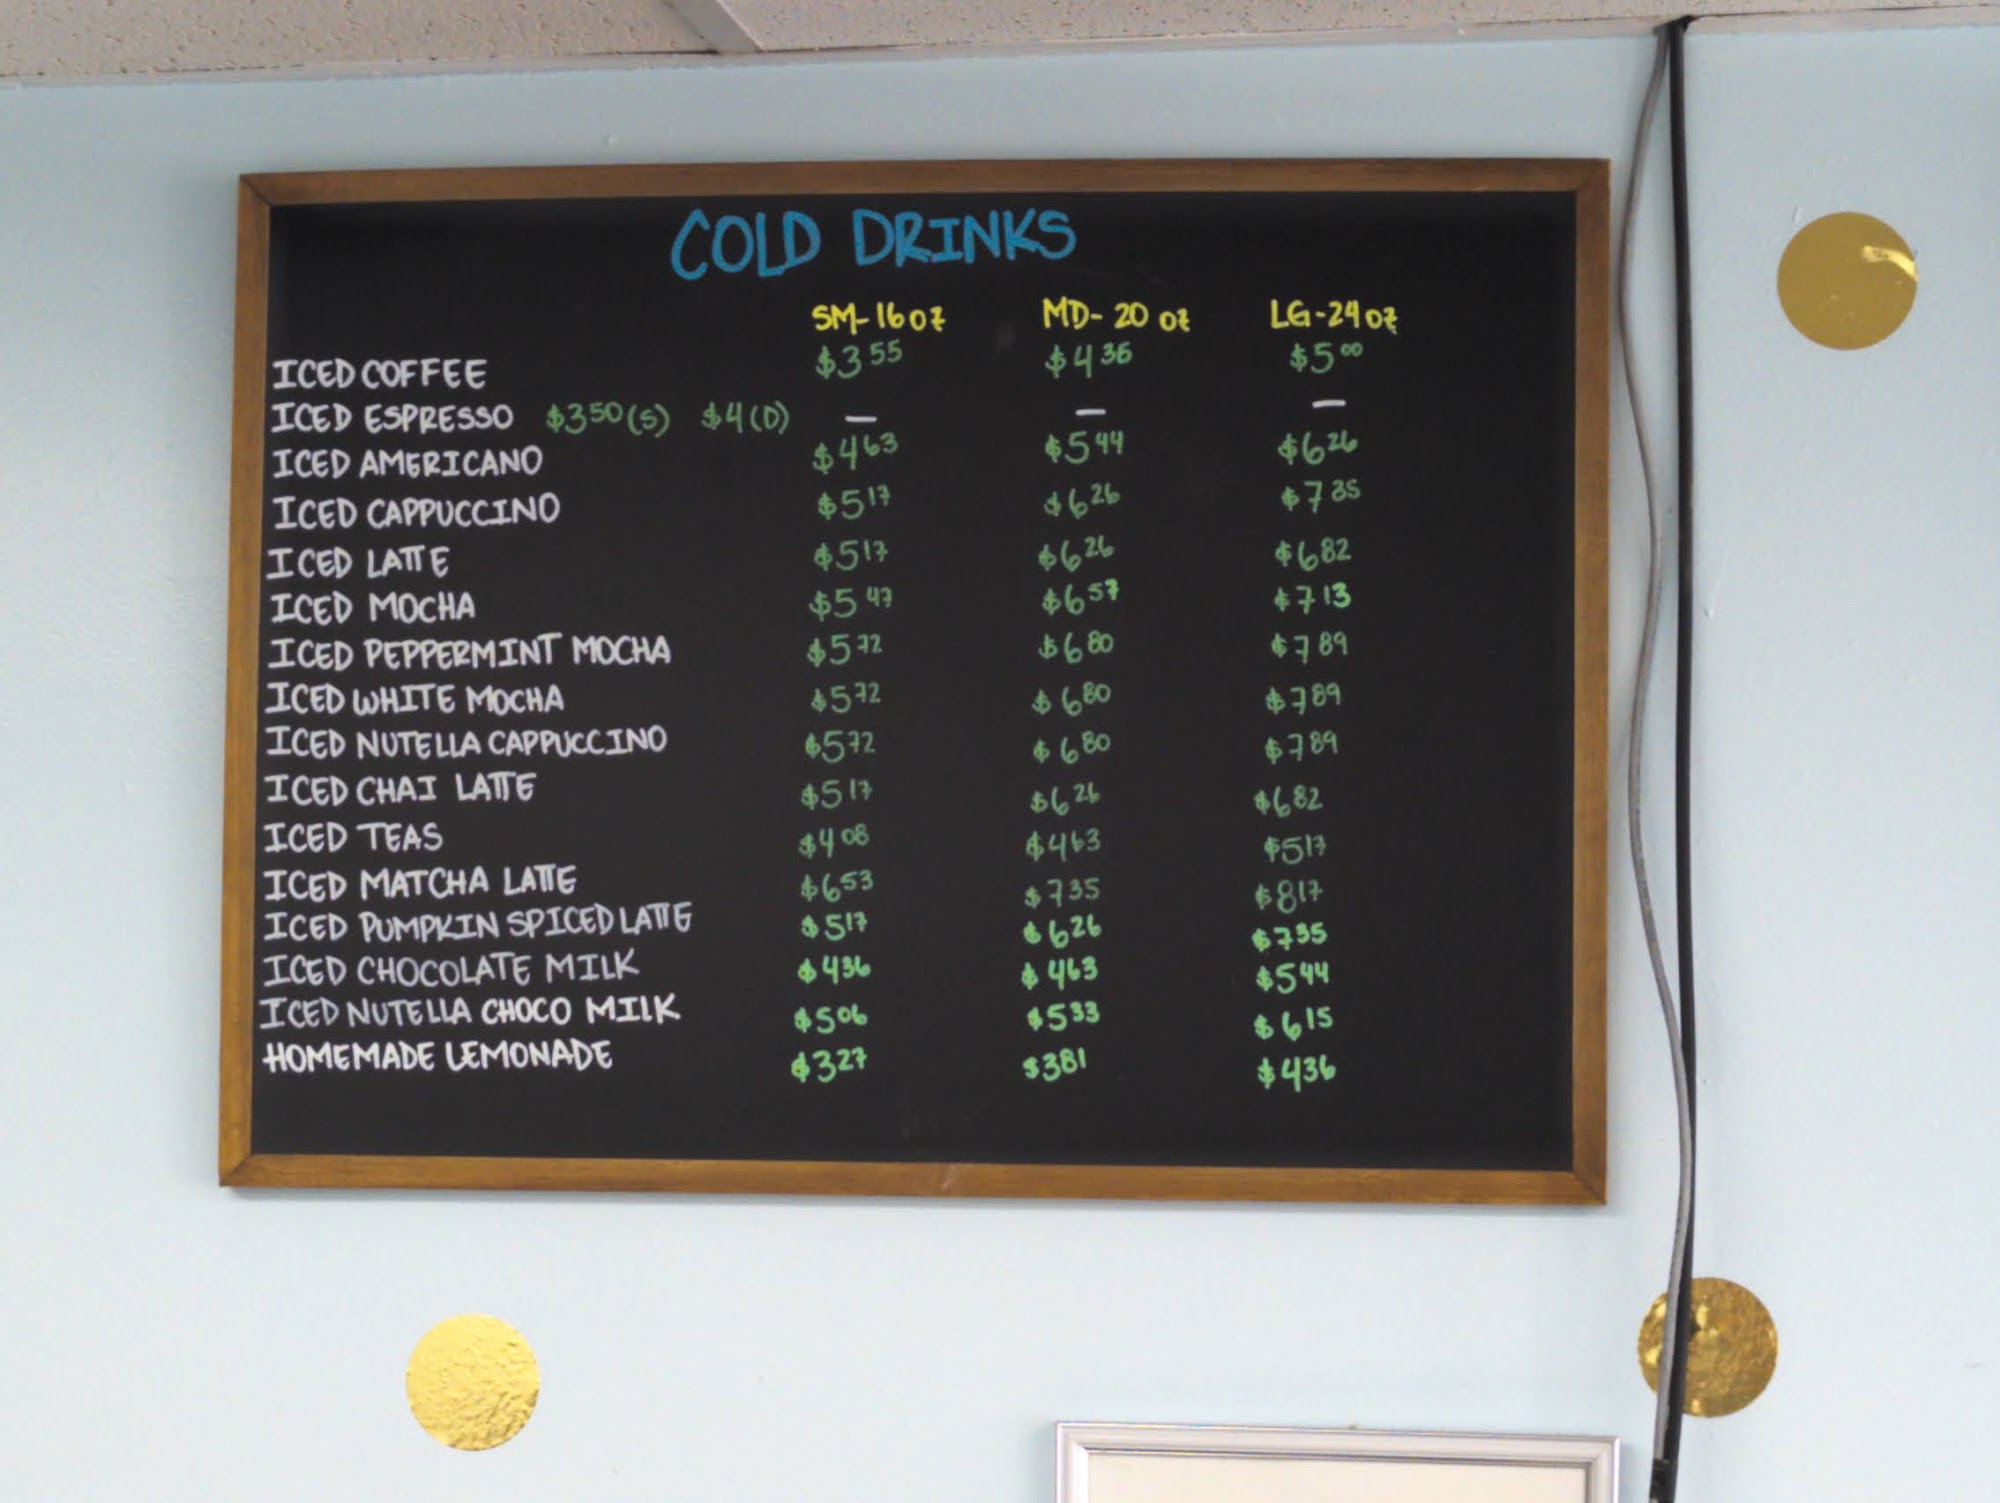 COLD DRINKS
SM-16oz MD-20 oz LG-24oz
ICED COFFEE $3 55 $4 36 $5 00
ICED ESPRESSO $3 50 (S) $4 (D) — — —
ICED AMERICANO $4 63 $5 44 $6 26
ICED CAPPUCCINO $5 17 $6 26 $7 35
ICED LATTE $5 17 $6 26 $6 82
ICED MOCHA $5 47 $6 57 $7 13
ICED PEPPERMINT MOCHA $5 72 $6 80 $7 89
ICED WHITE MOCHA $5 72 $6 80 $7 89
ICED NUTELLA CAPPUCCINO $5 72 $6 80 $7 89
ICED CHAI LATTE $5 17 $6 26 $6 82
ICED TEAS $4 08 $4 63 $5 17
ICED MATCHA LATTE $6 53 $7 35 $8 17
ICED PUMPKIN SPICED LATTE $5 17 $6 26 $7 35
ICED CHOCOLATE MILK $4 36 $4 63 $5 44
ICED NUTELLA CHOCO MILK $5 06 $5 33 $6 15
HOMEMADE LEMONADE $3 27 $3 81 $4 36